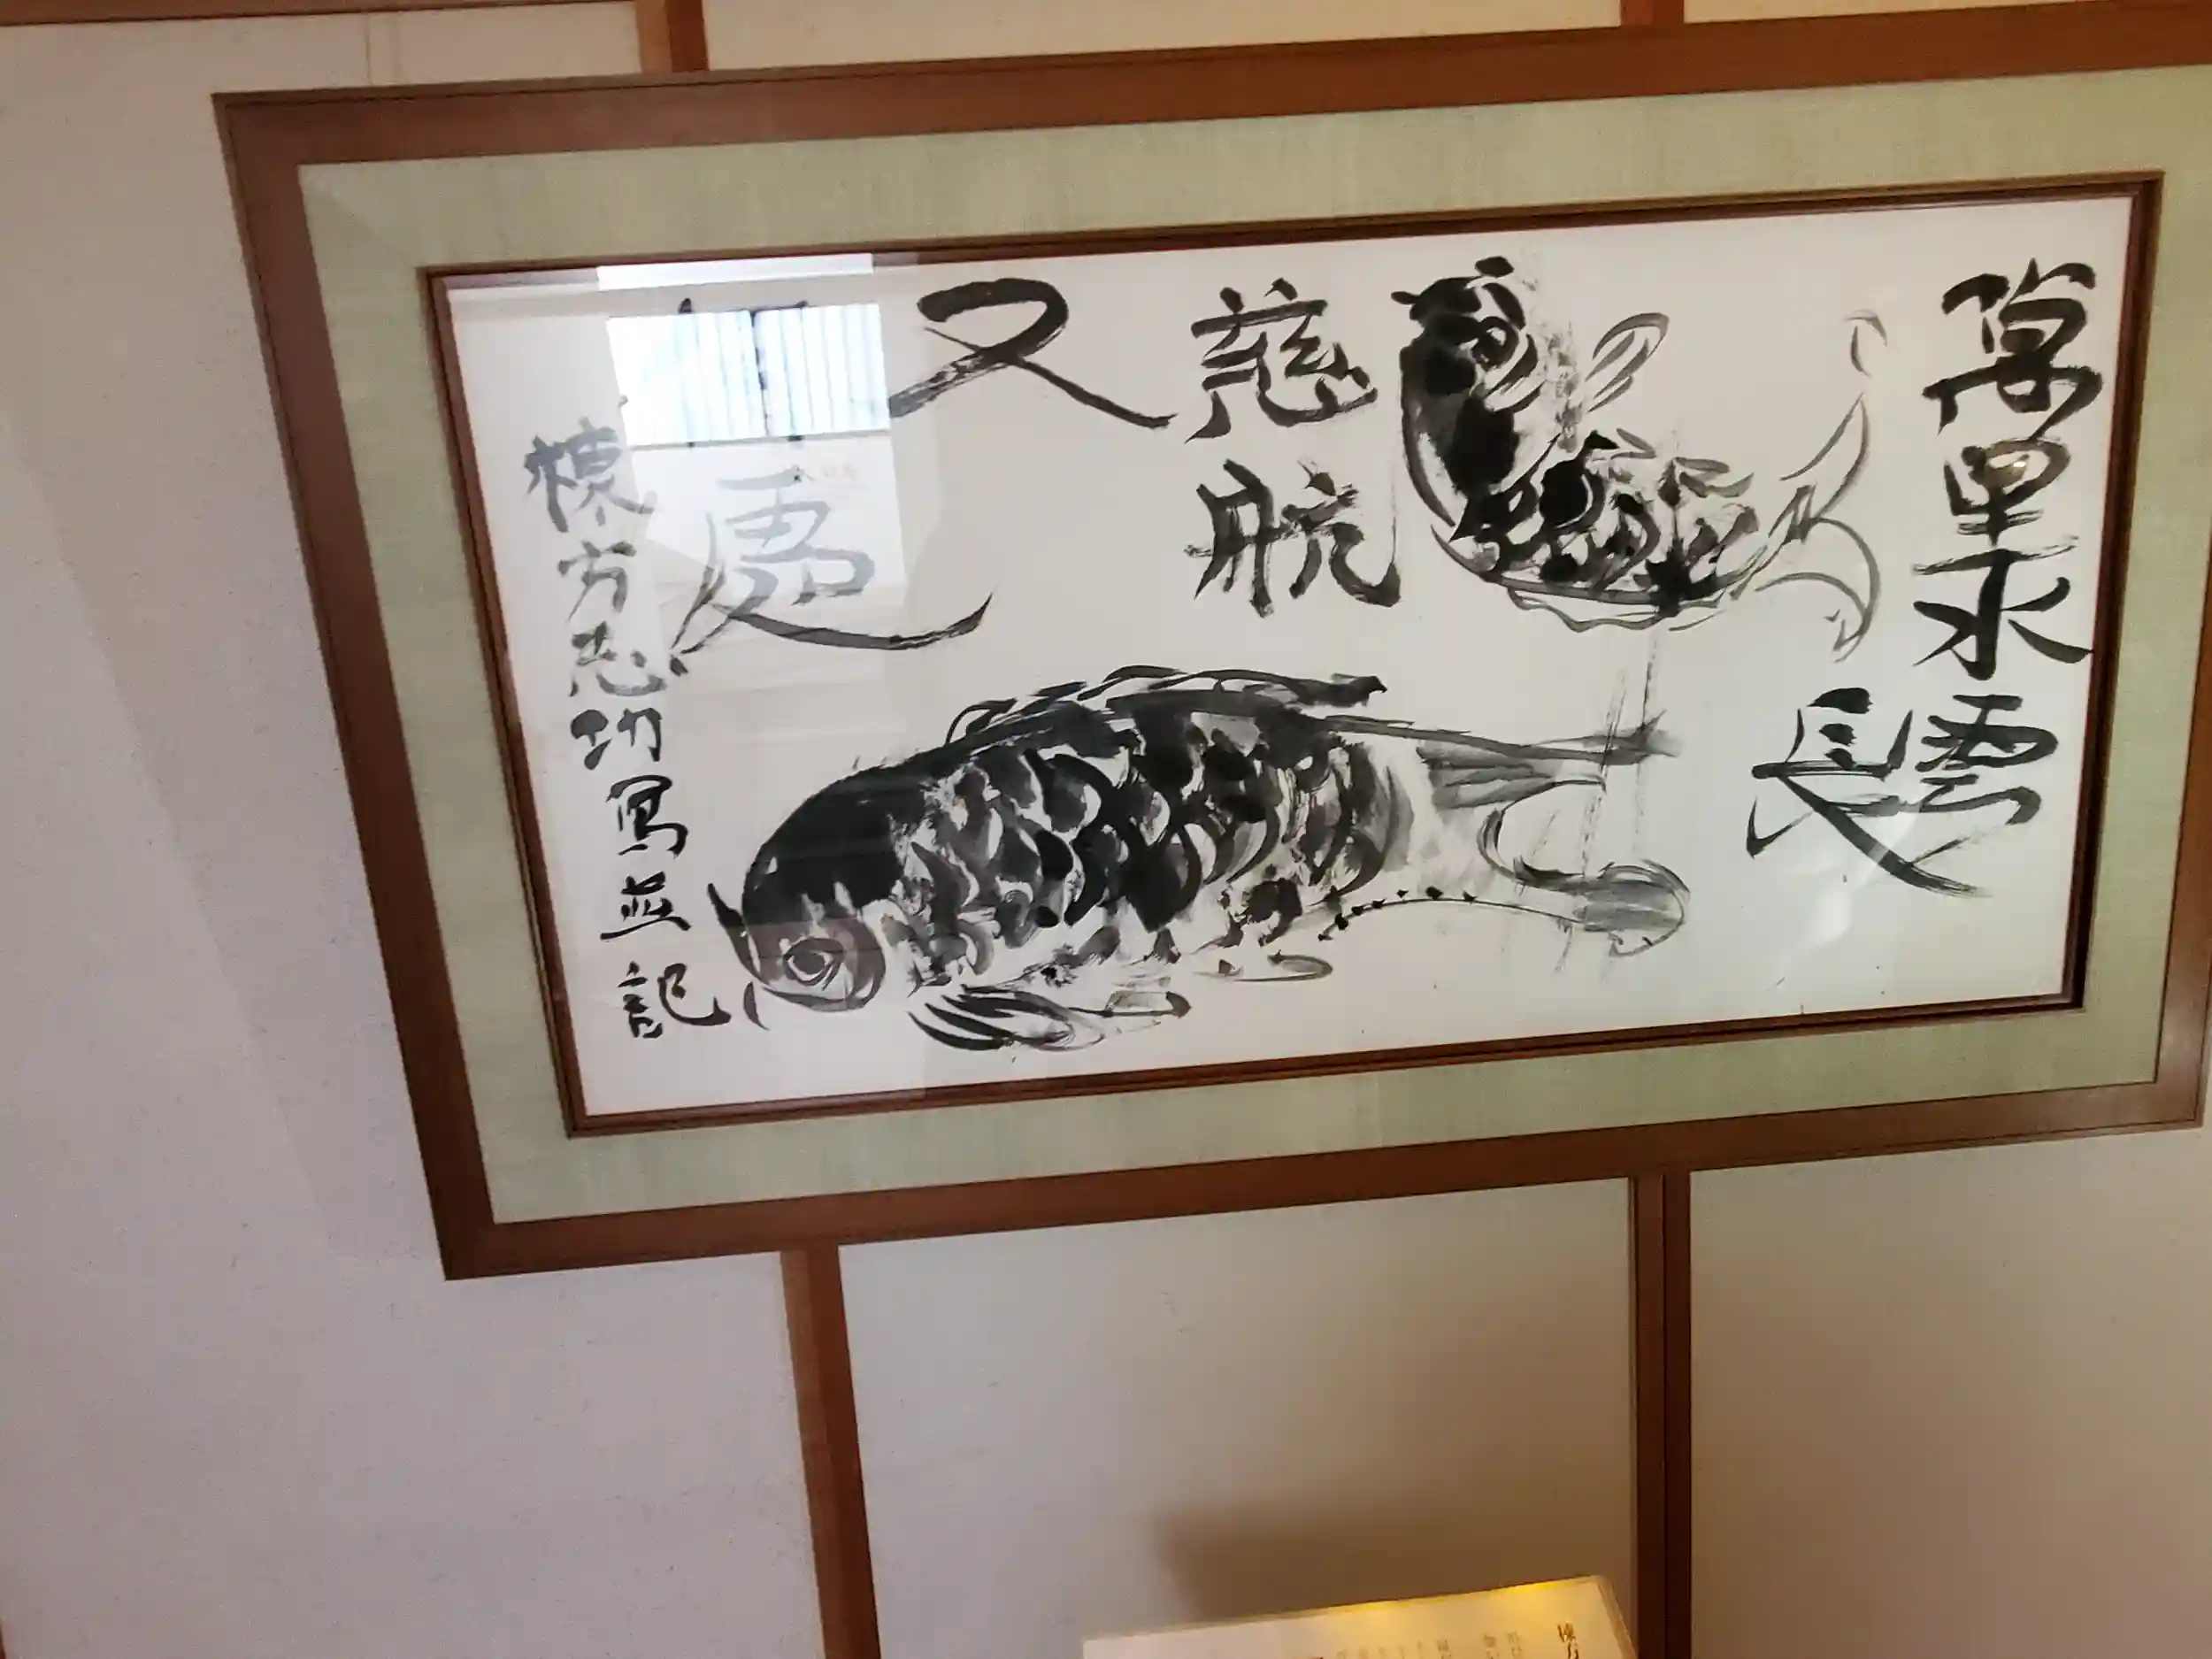 萬里水雲
長
慈航
又
處
棟方志功寫並記
棟方